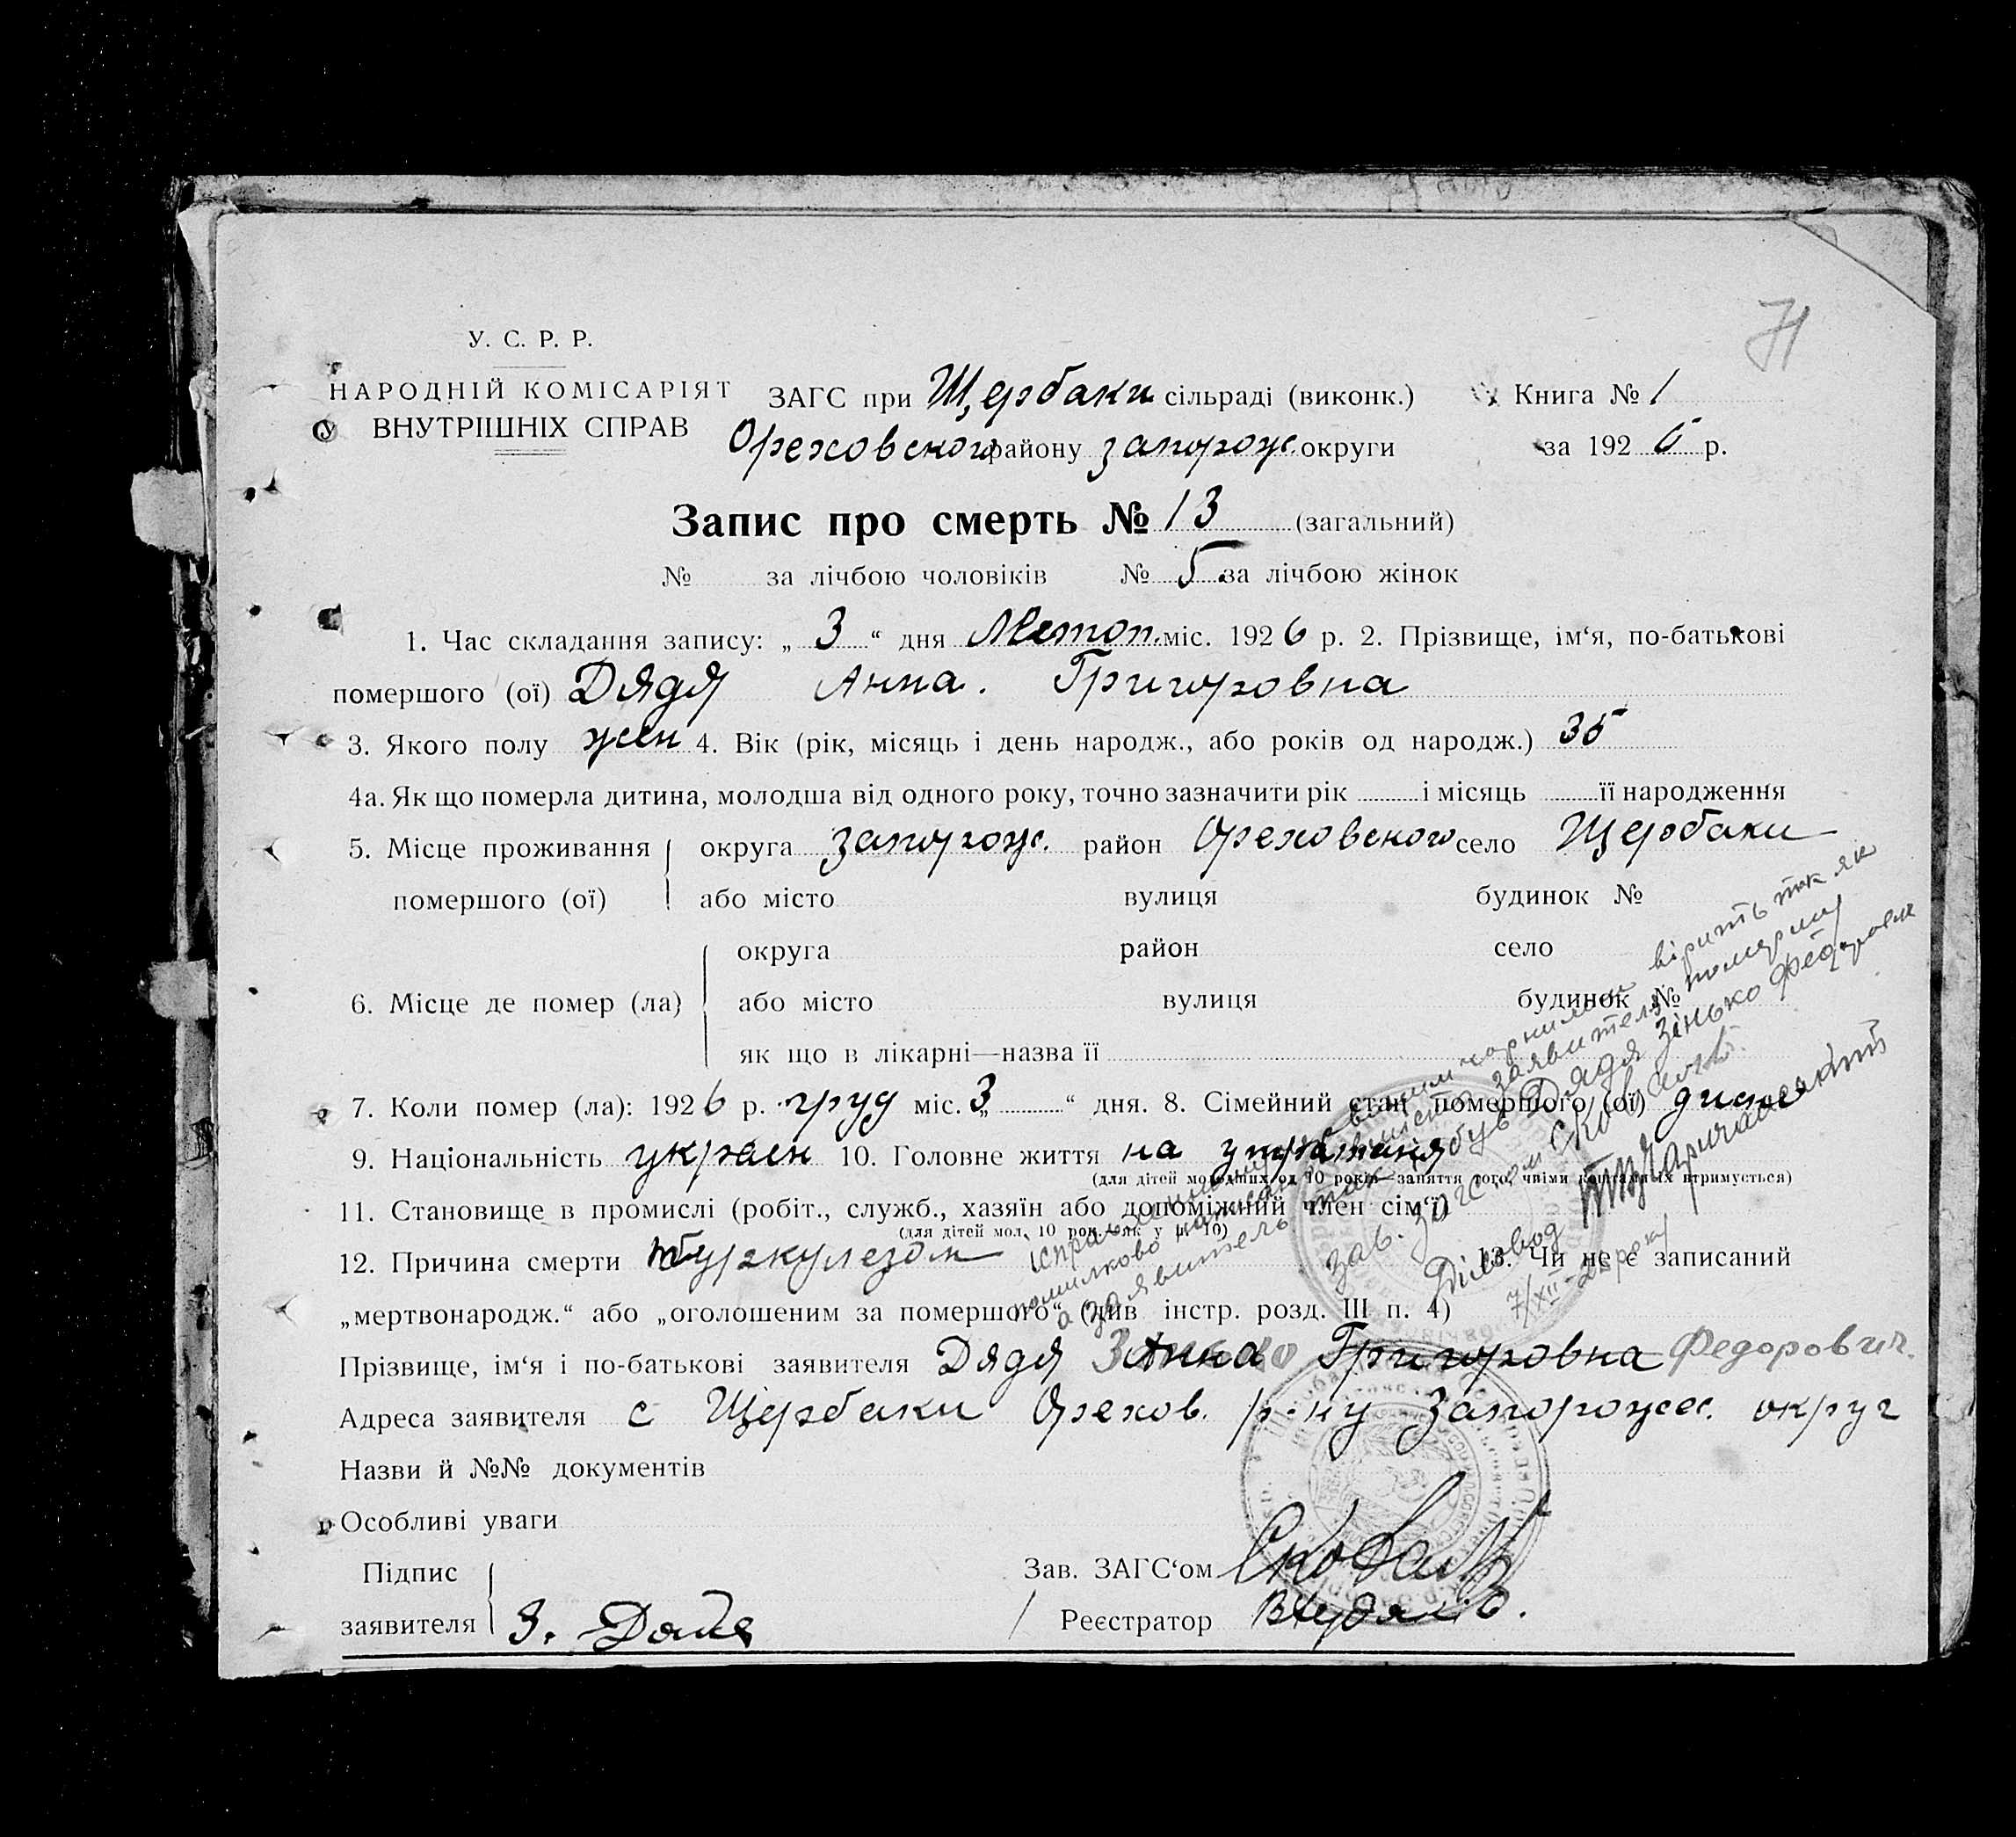 71
У. С. Р. Р.
НАРОДНІЙ КОМІСАРІЯТ
ВНУТРІШНІХ СПРАВ
ЗАГС при Щербаки сільраді (виконк.)
Ореховского району запорож. округи
Книга № 1
за 1926 р.
Запис про смерть № 13 (загальний)
№ за лічбою чоловіків № 5 за лічбою жінок
1. Час складання запису: „ 3 “ дня міс. 1926 р. 2. Прізвище, ім‘я, по-батькові
помершого (ої) Дядя Анна. Григоровна
3. Якого полу жен 4. Вік (рік, місяць і день народж., або років од народж.) 35
4а. Як що померла дитина, молодша від одного року, точно зазначити рік і місяць її народження
5. Місце проживання округа запорож. район Ореховского село Щербаки
помершого (ої) або місто вулиця будинок №
округа район село
6. Місце де помер (ла) або місто вулиця будинок №
як що в лікарні—назва її
7. Коли помер (ла): 1926 р. груд міс. „3 “ дня. 8. Сімейний стан помершого (ої)
9. Національність украен 10. Головне життя на
(для дітей молодших од 10 років—заняття того, чиїми коштами їх втримується)
11. Становище в промислі (робіт., служб., хазяїн або допоміжний член сім‘ї)
(для дітей мол. 10 рок. як у п. 10)
12. Причина смерти туркулезом 13. Чи не є записаний
„мертвонародж.“ або „оголошеним за помершого“ (див інстр. розд. III п. 4)
Прізвище, ім‘я і по-батькові заявителя Дядя Анна Григоровна Федорович.
Адреса заявителя с Щербаки Орехов. р-ну Запорожск. округ
Назви й №№ документів
Особливі уваги
Підпис
заявителя З. Дядя
Зав. ЗАГС‘ом
Реєстратор
чорнилом вірить так як
помилково написан заявитель
а заявитель був Дядя Зінько Федорович
Зав. Загсом
Діловод
7/XII-26 року